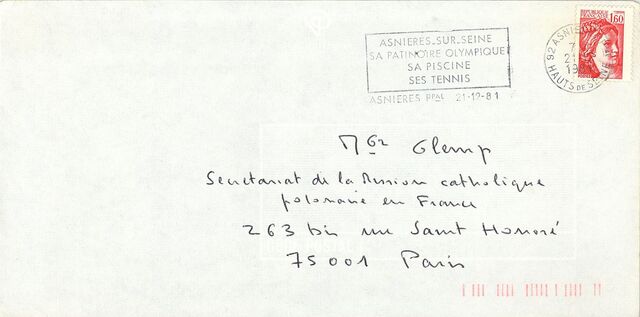 ASNIERES-SUR-SEINE
SA PATINOIRE OLYMPIQUE
SA PISCINE
SES TENNIS
ASNIERES PPAL 21-12-81
92 ASNIE
HAUTS DE SEINE
REPUBLIQUE
FRANÇAISE
1,60
Mgr Glemp
Secretariat de la Mission catholique
polonaise en France
263 bis rue Saint Honoré
75001 Paris